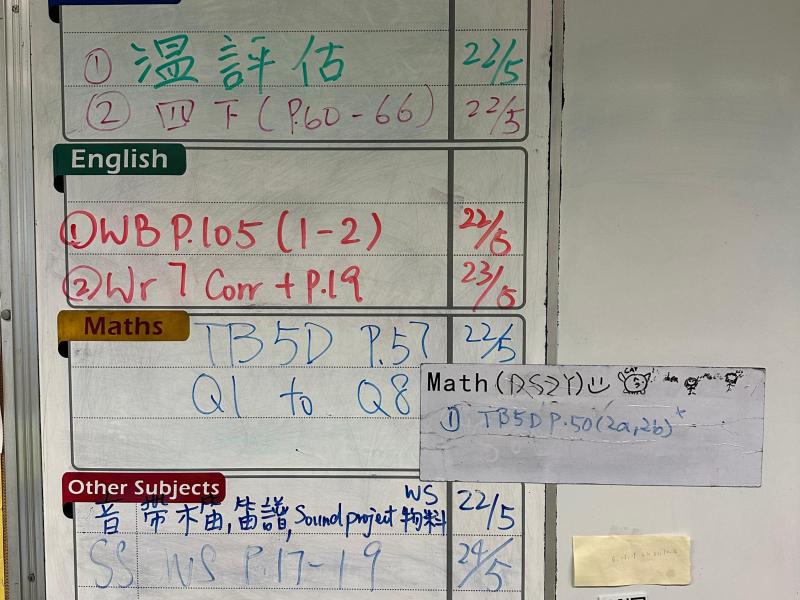 ① 溫評估 22/5
② 四下(P.60-66) 22/5
English
① WB P.105 (1-2) 22/5
② Wr 7 Corr + P.19 23/5
Maths
TB5D P.57 22/5
Q1 to Q8
Math (DSZY)
CAT
① TB5D P.50(2a,2b)
Other Subjects
音 帶木笛,笛譜, Sound project WS 物料 22/5
SS WS P.17-19 24/5